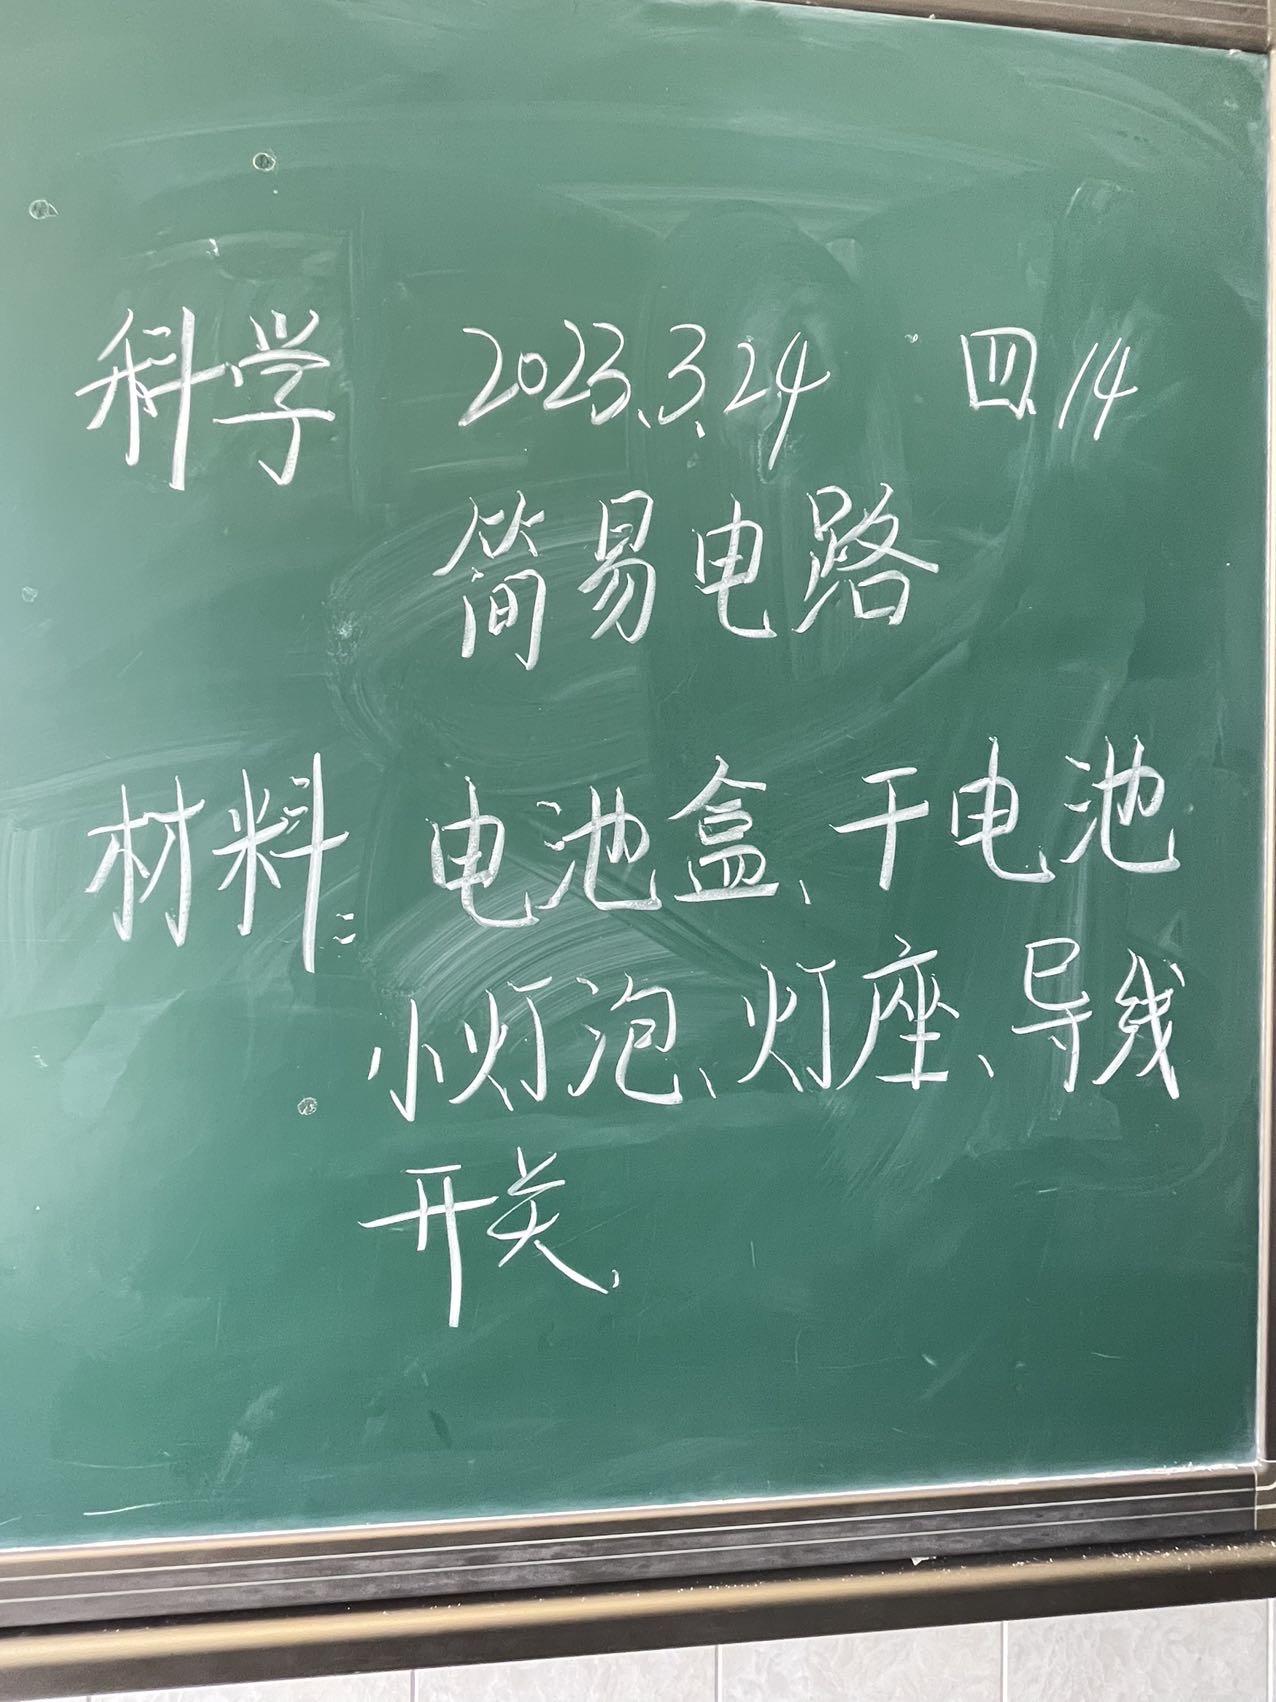 科学 2023.3.24 四.14
简易电路
材料: 电池盒、干电池
小灯泡、灯座、导线
开关、